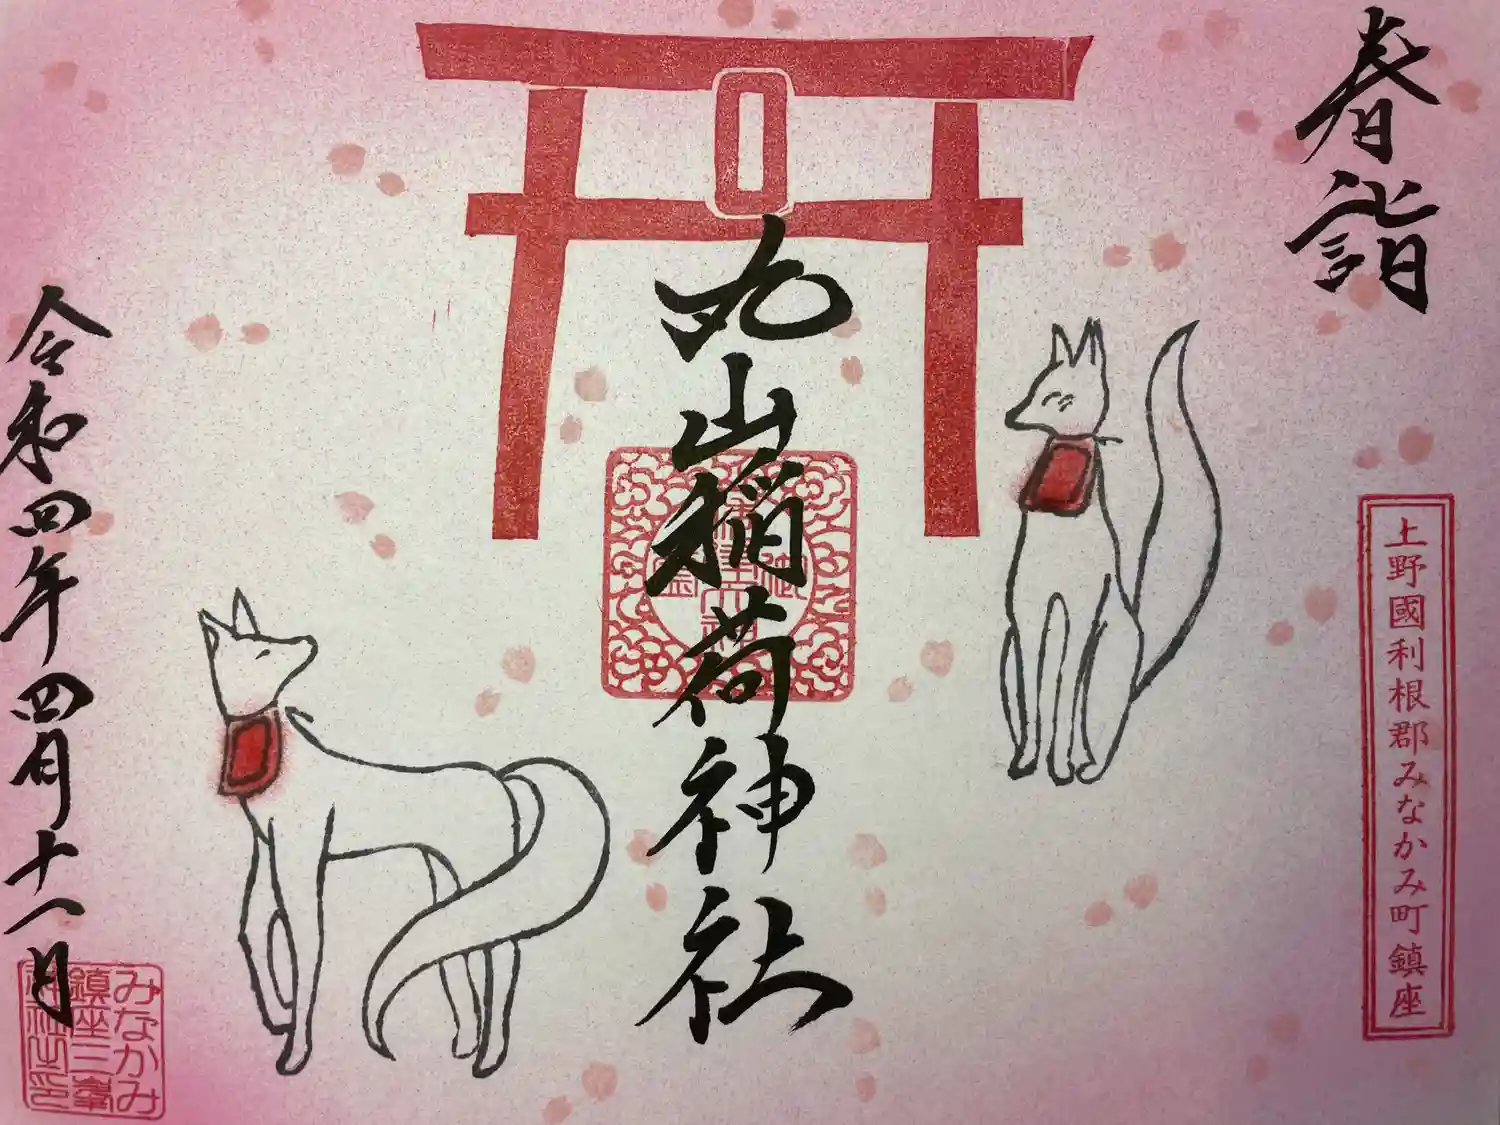 春詣
上野國利根郡みなかみ町鎮座
丸山稲荷神社
令和四年四月十一日
みなかみ
鎮座三峯
神社之印